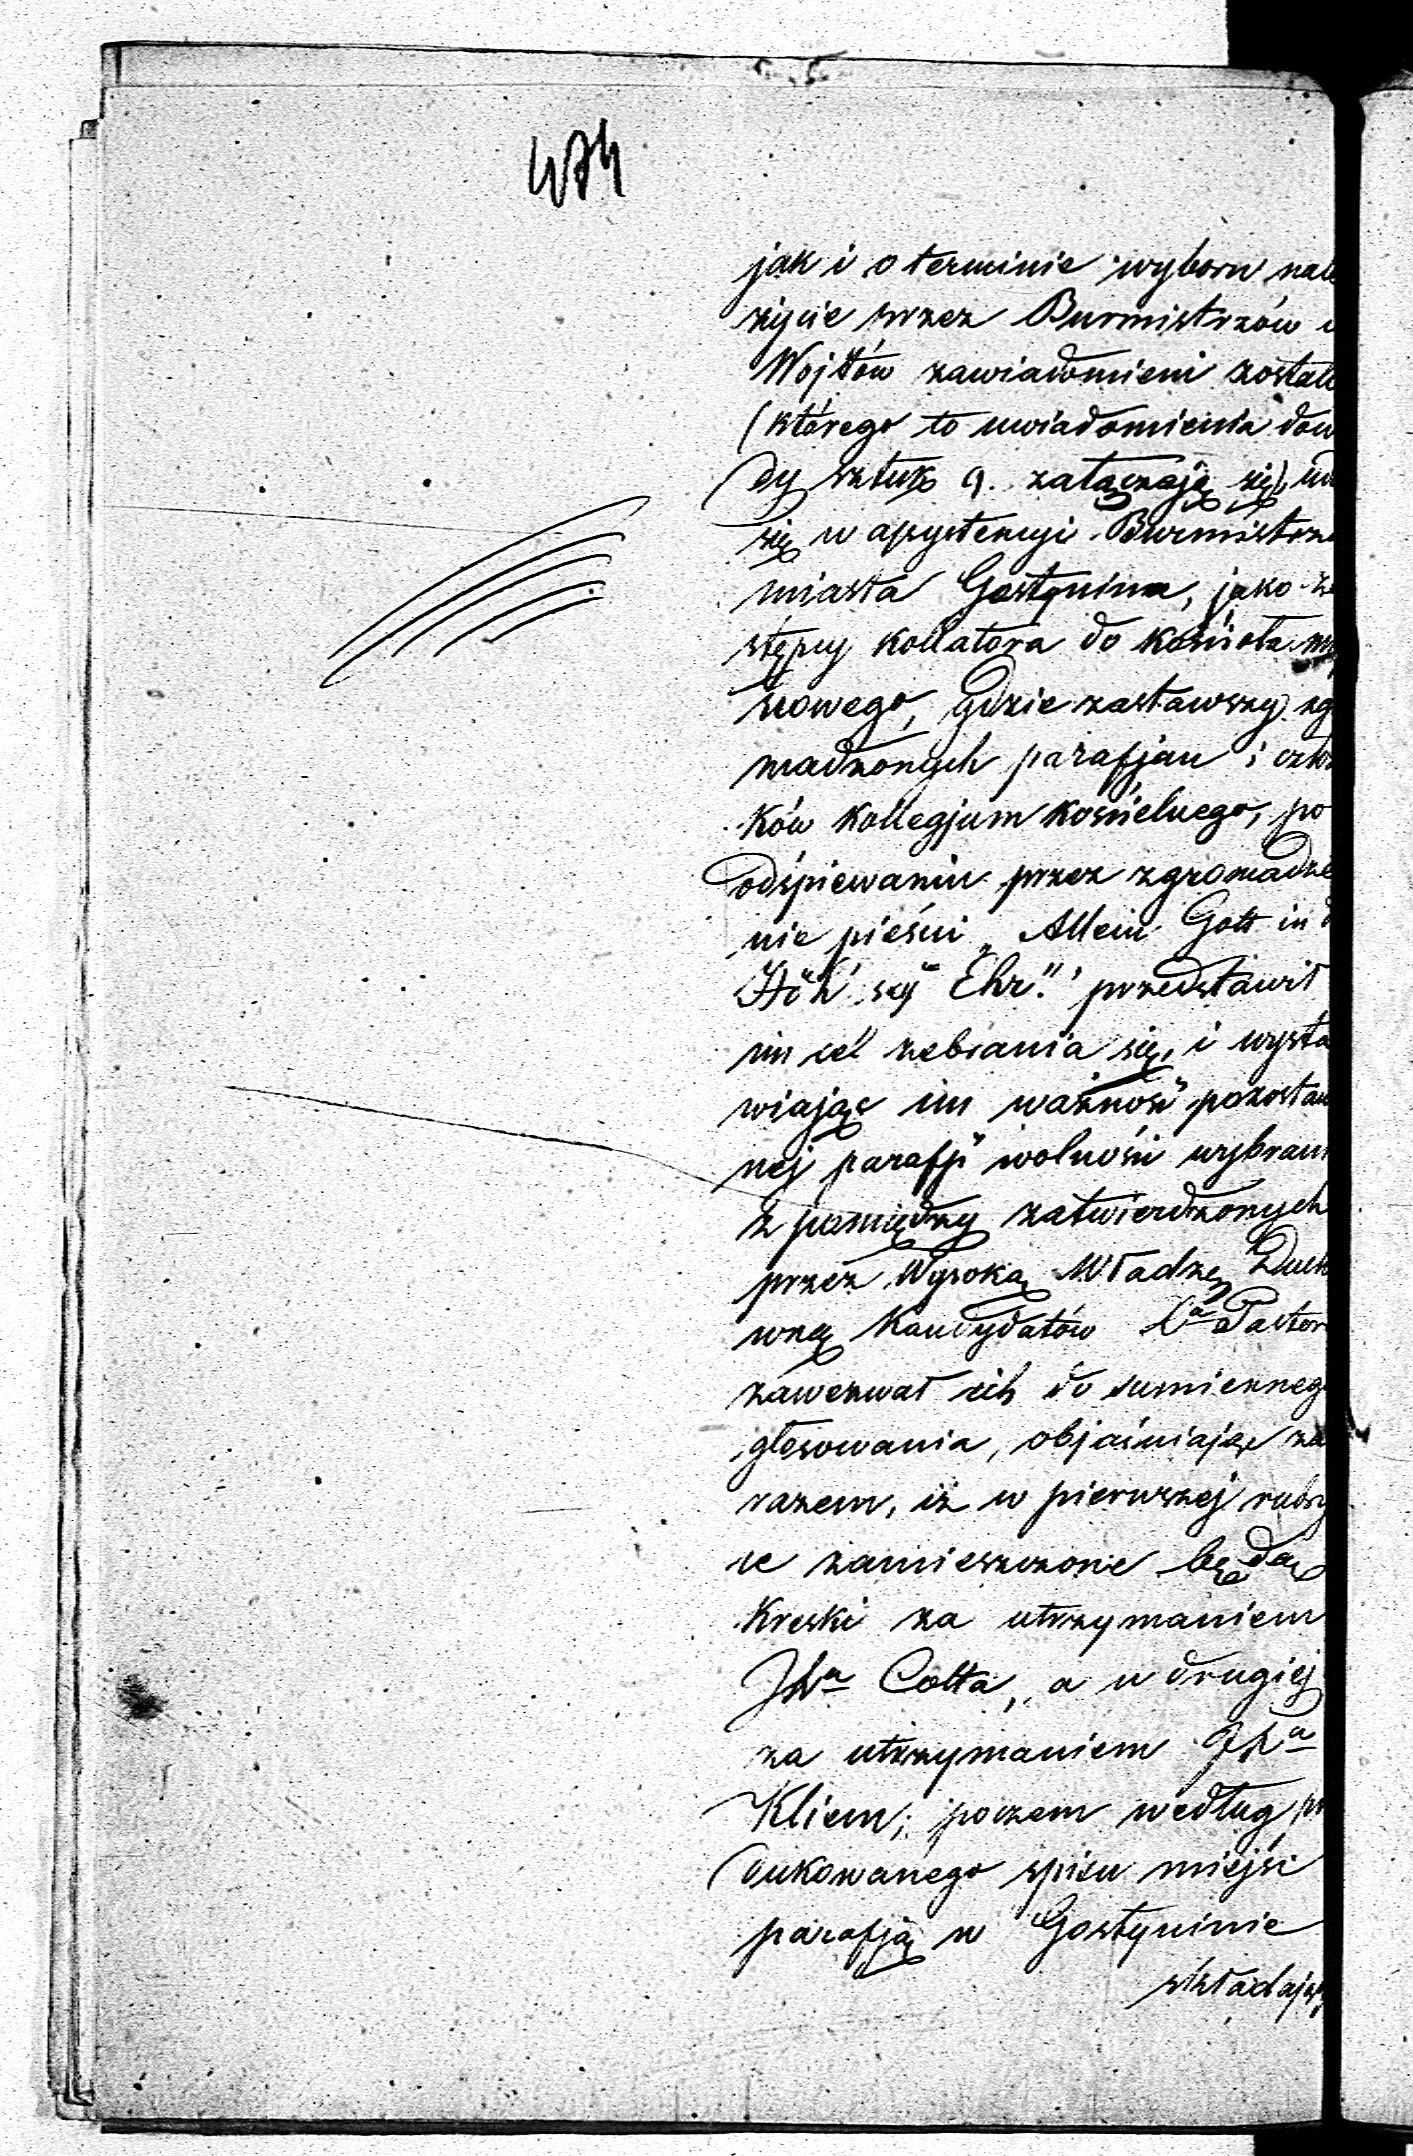 474
jak i o terminie wyboru nale
życie przez Burmistrzów i
Wojtów zawiadomieni zostali
(którego to uwiadomienia dow
dy sztuk 9. załączają się), ud
się w assystencyi Burmistrza
miasta Gostynina, jako za
stępcy kollatora do kościoła
nowego, gdzie zastawszy zg
madzonych parafjan i człon
ków kollegjum kościelnego, po
odśpiewaniu przez zgromadze
nie pieśni „Allein Gott in d
Höh' seÿ Ehr." przedstawił
im cel zebrania się, i wysta
wiając im ważność pozostaw
nej parafji wolności wybrani
z pomiędzy zatwierdzonych
przez Wysoką Władzę Duch
wną Kandydatów na Pastor
zawezwał ich do sumiennego
głosowania, objaśniając za
razem, iż w pierwszej rubry
ce zamieszczone będą
Kreski za utrzymaniem
JXa Colta, a w drugiej
za utrzymaniem JXa
Kliem; poczem według pr
dukowanego spisu miejsc
parafją w Gostyninie
składają